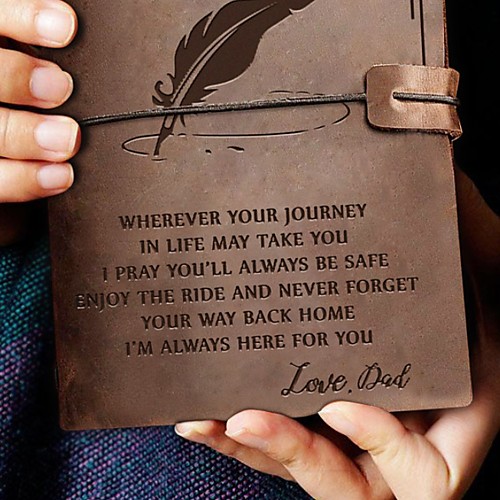 WHEREVER YOUR JOURNEY
IN LIFE MAY TAKE YOU
I PRAY YOU'LL ALWAYS BE SAFE
ENJOY THE RIDE AND NEVER FORGET
YOUR WAY BACK HOME
I'M ALWAYS HERE FOR YOU
Love, Dad